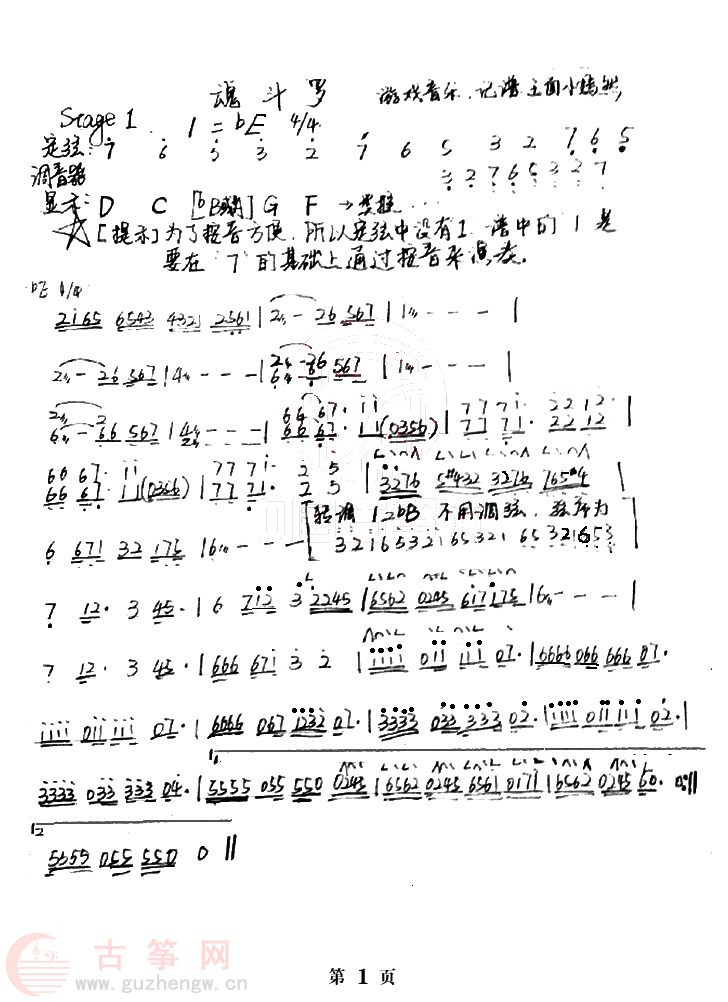 魂斗罗 游戏音乐.记谱
Stage 1 1=bE 4/4
定弦: 7 6 5 3 2 7 6 5 3 2 7 6 5
3 2 7 6 5 3 2 7
调音器
显示: D C [bB] G F → 类推 ...
☆[提示]为了按音方便,所以定弦中没有1.谱中的1是
要在7的基础上通过按音来演奏.
bE 4/4
2165 6543 4321 2561 | 2 - 26 567 | 1 - - - |
2 - 26 567 | 4 - - - | 2 - 26 567 | 1 - - - |
6 - 66 567 | 4 - - - | 66 67· 11 (0356) | 77 71· 22 12 |
66 67· 11 (0356) | 77 71· 2 5 | 3276 5#432 3276 765#4 |
6 671 32 175 | 6 - - - [转调1=bB 不用调弦,弦序为
321653216532165321653
7 12· 3 45· | 6 712 3 2245 | 6562 0245 617175 | 6 - - - |
7 12· 3 45· | 666 671 3 2 | 1111 011 111 07· | 6666 066 666 07·
1111 011 111 07· | 6666 067 1232 07· | 3333 033 333 02· | 1111 011 111 02· |
1.
3333 033 333 04· | 5555 055 550 0245 | 6562 0245 6561 0171 | 6562 0245 60· 0 ||
2
5555 055 550 0 ||
古筝网
www.guzhengw.cn
第 1 页